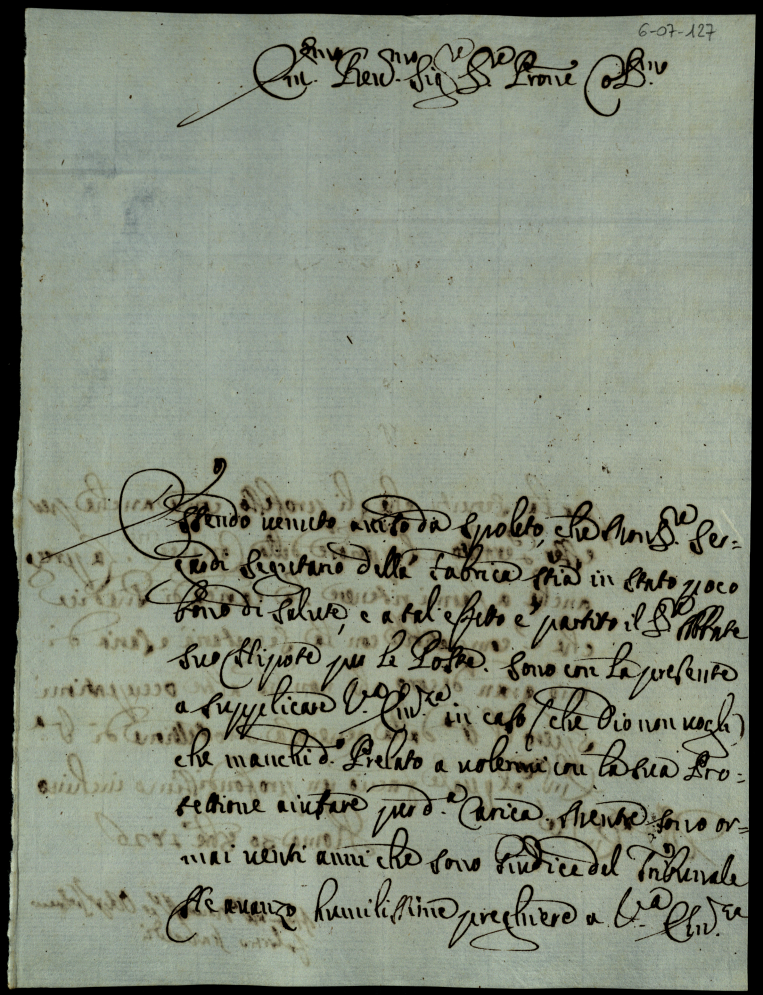 6-07-127
Em.mo Reu.mo Sig.re S.re Prone Co.mo
Essendo uenuto auiso da Spoleto, che Mons.re Ser-
gardi Secretario della Fabrica stia in stato poco
bono di salute, e a tal effeto e partito il S.re Abbate
suo Nipote per le Poste. Sono con la presente
a supplicare V.a Em.za in caso (che Dio non uogli)
che manchi d.o Prelato a uolermi con la sua Pro-
tettione aiutare per d.a Carica mentre sono or-
mai uenti anni che sono Giudice del Tribunale
Ne auanzo humilissime preghiere a V.a Em.za